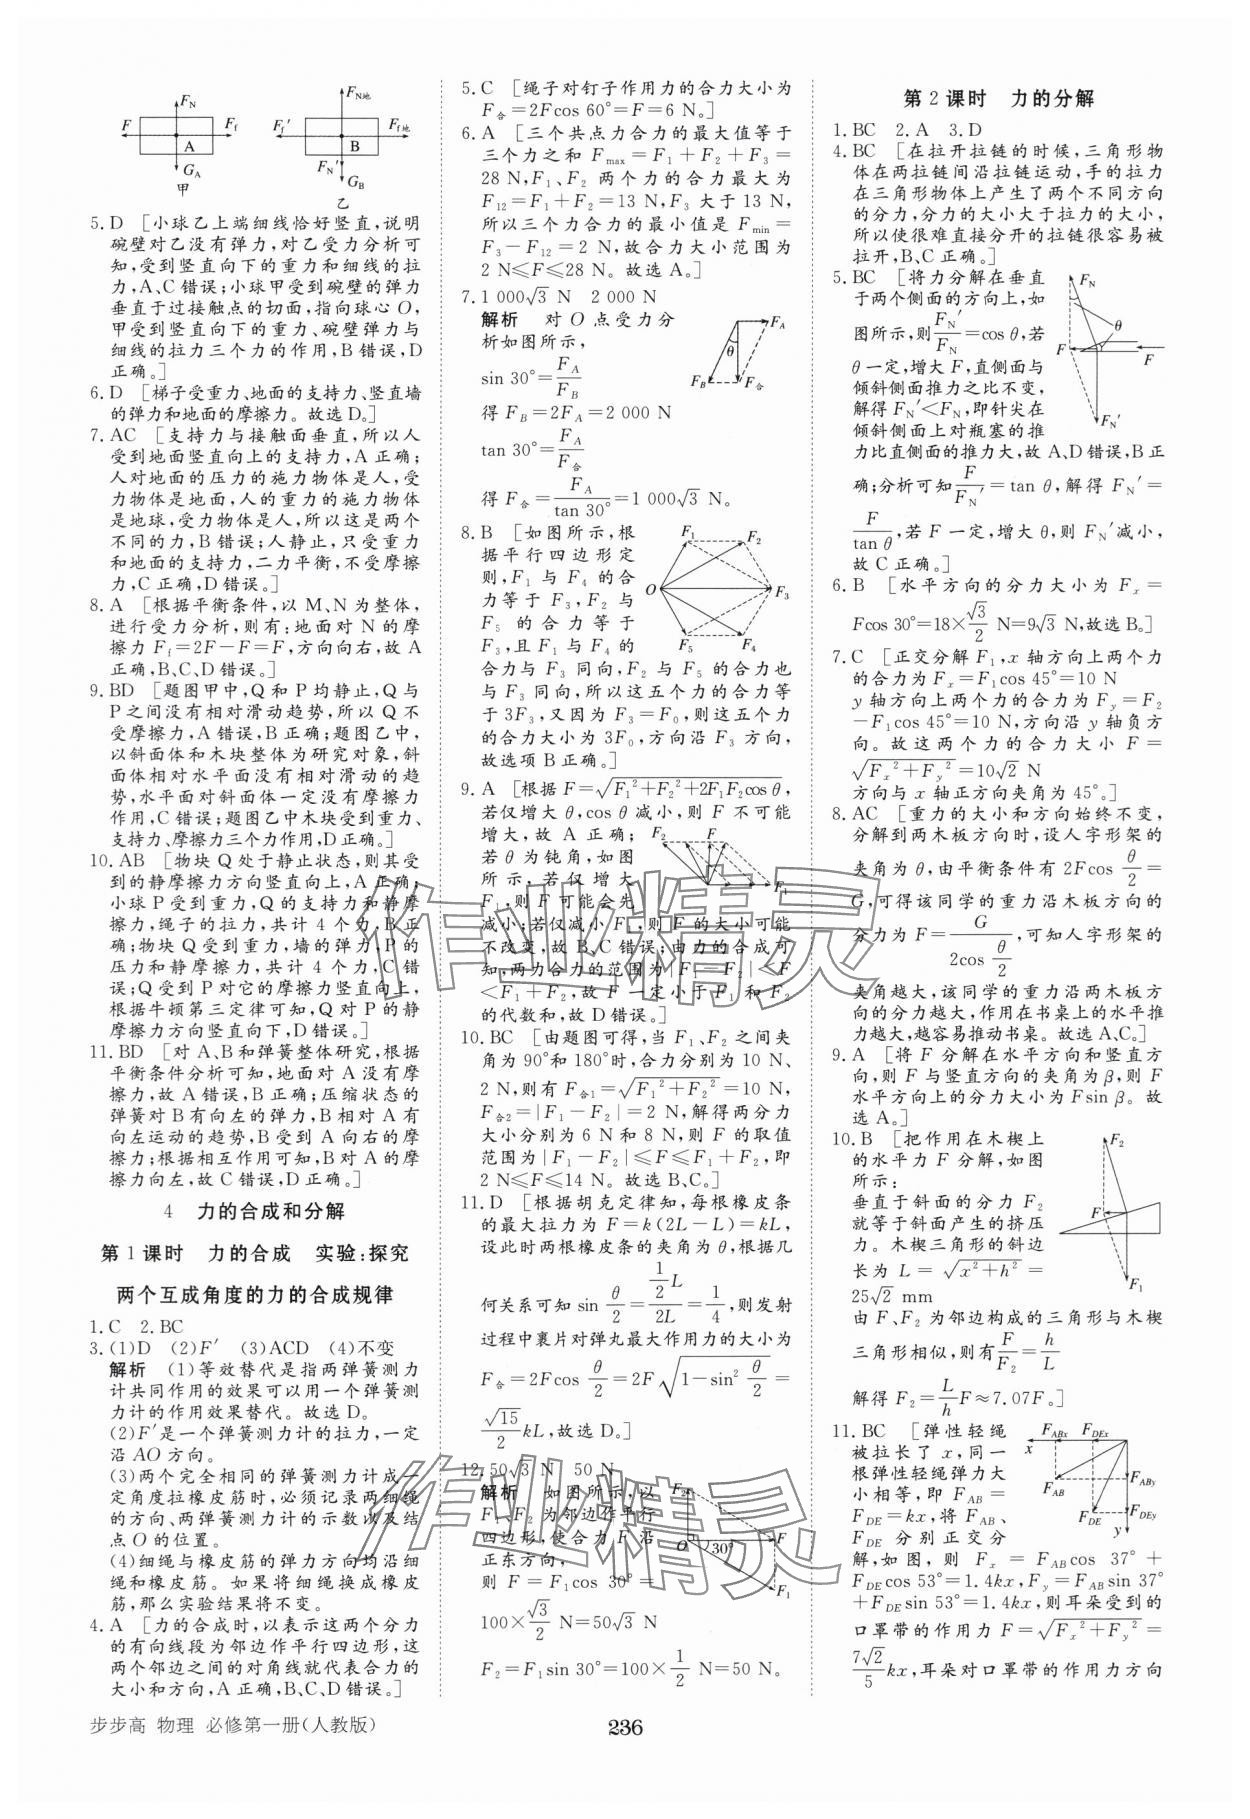 F_N
F
F_f
A
G_A
甲
F_N地
F_f′
F_f地
B
F_N′
G_B
乙
5. D [小球乙上端细线恰好竖直,说明
碗壁对乙没有弹力,对乙受力分析可
知,受到竖直向下的重力和细线的拉
力,A、C错误;小球甲受到碗壁的弹力
垂直于过接触点的切面,指向球心O,
甲受到竖直向下的重力、碗壁弹力与
细线的拉力三个力的作用,B错误,D
正确。]
6. D [梯子受重力、地面的支持力、竖直墙
的弹力和地面的摩擦力。故选D。]
7. AC [支持力与接触面垂直,所以人
受到地面竖直向上的支持力,A正确;
人对地面的压力的施力物体是人,受
力物体是地面,人的重力的施力物体
是地球,受力物体是人,所以这是两个
不同的力,B错误;人静止,只受重力
和地面的支持力,二力平衡,不受摩擦
力,C正确,D错误。]
8. A [根据平衡条件,以M、N为整体,
进行受力分析,则有:地面对N的摩
擦力F_f=2F-F=F,方向向右,故A
正确,B、C、D错误。]
9. BD [题图甲中,Q和P均静止,Q与
P之间没有相对滑动趋势,所以Q不
受摩擦力,A错误,B正确;题图乙中,
以斜面体和木块整体为研究对象,斜
面体相对水平面没有相对滑动的趋
势,水平面对斜面体一定没有摩擦力
作用,C错误;题图乙中木块受到重力、
支持力、摩擦力三个力作用,D正确。]
10. AB [物块Q处于静止状态,则其受
到的静摩擦力方向竖直向上,A正确;
小球P受到重力,Q的支持力和静摩
擦力,绳子的拉力,共计4个力,B正
确;物块Q受到重力,墙的弹力,P的
压力和静摩擦力,共计4个力,C错
误;Q受到P对它的摩擦力竖直向上,
根据牛顿第三定律可知,Q对P的静
摩擦力方向竖直向下,D错误。]
11. BD [对A、B和弹簧整体研究,根据
平衡条件分析可知,地面对A没有摩
擦力,故A错误,B正确;压缩状态的
弹簧对B有向左的弹力,B相对A有
向左运动的趋势,B受到A向右的摩
擦力;根据相互作用可知,B对A的摩
擦力向左,故C错误,D正确。]
4 力的合成和分解
第1课时 力的合成 实验:探究
两个互成角度的力的合成规律
1. C 2. BC
3. (1)D (2)F′ (3)ACD (4)不变
解析 (1)等效替代是指两弹簧测力
计共同作用的效果可以用一个弹簧测
力计的作用效果替代。故选D。
(2)F′是一个弹簧测力计的拉力,一定
沿AO方向。
(3)两个完全相同的弹簧测力计成一
定角度拉橡皮筋时,必须记录两细绳
的方向、两弹簧测力计的示数以及结
点O的位置。
(4)细绳与橡皮筋的弹力方向均沿细
绳和橡皮筋。如果将细绳换成橡皮
筋,那么实验结果将不变。
4. A [力的合成时,以表示这两个分力
的有向线段为邻边作平行四边形,这
两个邻边之间的对角线就代表合力的
大小和方向,A正确,B、C、D错误。]
5. C [绳子对钉子作用力的合力大小为
F_合=2Fcos 60°=F=6 N。]
6. A [三个共点力合力的最大值等于
三个力之和F_max=F₁+F₂+F₃=
28 N,F₁、F₂两个力的合力最大为
F₁₂=F₁+F₂=13 N,F₃大于13 N,
所以三个力合力的最小值是F_min=
F₃-F₁₂=2 N,故合力大小范围为
2 N≤F≤28 N。故选A。]
7. 1 000√3 N 2 000 N
解析 对O点受力分
析如图所示,
sin 30°=F_A/F_B
得F_B=2F_A=2 000 N
tan 30°=F_A/F_合
得F_合=F_A/tan 30°=1 000√3 N。
F_A
θ
F_B
F_合
8. B [如图所示,根
据平行四边形定
则,F₁与F₄的合
力等于F₃,F₂与
F₅的合力等于
F₃,且F₁与F₄的
合力与F₃同向,F₂与F₅的合力也
与F₃同向,所以这五个力的合力等
于3F₃,又因为F₃=F₀,则这五个力
的合力大小为3F₀,方向沿F₃方向,
故选项B正确。]
F₁
F₂
O
F₃
F₅
F₄
9. A [根据F=√(F₁²+F₂²+2F₁F₂cos θ),
若仅增大θ,cos θ减小,则F不可能
增大,故A正确;
若θ为钝角,如图
所示,若仅增大
F₁,则F可能会先
减小;若仅减小F₁,则F的大小可能
不改变,故B、C错误;由力的合成可
知,两力合力的范围为|F₁-F₂|<F
<F₁+F₂,故F一定小于F₁和F₂
的代数和,故D错误。]
F₂
F
F₁
10. BC [由题图可得,当F₁、F₂之间夹
角为90°和180°时,合力分别为10 N、
2 N,则有F_合1=√(F₁²+F₂²)=10 N,
F_合2=|F₁-F₂|=2 N,解得两分力
大小分别为6 N和8 N,则F的取值
范围为|F₁-F₂|≤F≤F₁+F₂,即
2 N≤F≤14 N。故选B、C。]
11. D [根据胡克定律知,每根橡皮条
的最大拉力为F=k(2L-L)=kL,
设此时两根橡皮条的夹角为θ,根据几
何关系可知sin θ/2=(1/2 L)/2L=1/4,则发射
过程中裹片对弹丸最大作用力的大小为
F_合=2Fcos θ/2=2F√(1-sin² θ/2)=
√15/2 kL,故选D。]
12. 50√3 N 50 N
解析 如图所示,以
F₁、F₂为邻边作平行
四边形,使合力F沿
正东方向,
则F=F₁cos 30°=
100×√3/2 N=50√3 N
F₂=F₁sin 30°=100×1/2 N=50 N。
F₂
O
30°
F
F₁
第2课时 力的分解
1. BC 2. A 3. D
4. BC [在拉开拉链的时候,三角形物
体在两拉链间沿拉链运动,手的拉力
在三角形物体上产生了两个不同方向
的分力,分力的大小大于拉力的大小,
所以使很难直接分开的拉链很容易被
拉开,B、C正确。]
5. BC [将力分解在垂直
于两个侧面的方向上,如
图所示,则F_N′/F_N=cos θ,若
θ一定,增大F,直侧面与
倾斜侧面推力之比不变,
解得F_N′<F_N,即针尖在
倾斜侧面上对瓶塞的推
力比直侧面的推力大,故A、D错误,B正
确;分析可知F/F_N′=tan θ,解得F_N′=
F/tan θ,若F一定,增大θ,则F_N′减小,
故C正确。]
F_N
θ
F
F
F_N′
6. B [水平方向的分力大小为F_x=
Fcos 30°=18×√3/2 N=9√3 N,故选B。]
7. C [正交分解F₁,x轴方向上两个力
的合力为F_x=F₁cos 45°=10 N
y轴方向上两个力的合力为F_y=F₂
-F₁cos 45°=10 N,方向沿y轴负方
向。故这两个力的合力大小F=
√(F_x²+F_y²)=10√2 N
方向与x轴正方向夹角为45°。]
8. AC [重力的大小和方向始终不变,
分解到两木板方向时,设人字形架的
夹角为θ,由平衡条件有2Fcos θ/2=
G,可得该同学的重力沿木板方向的
分力为F=G/(2cos θ/2),可知人字形架的
夹角越大,该同学的重力沿两木板方
向的分力越大,作用在书桌上的水平推
力越大,越容易推动书桌。故选A、C。]
9. A [将F分解在水平方向和竖直方
向,则F与竖直方向的夹角为β,则F
水平方向上的分力大小为Fsin β。故
选A。]
10. B [把作用在木楔上
的水平力F分解,如图
所示:
垂直于斜面的分力F₂
就等于斜面产生的挤压
力。木楔三角形的斜边
长为L=√(x²+h²)=
25√2 mm
由F、F₂为邻边构成的三角形与木楔
三角形相似,则有F/F₂=h/L
解得F₂=L/h F≈7.07F。]
F₂
F
F₁
11. BC [弹性轻绳
被拉长了x,同一
根弹性轻绳弹力大
小相等,即F_AB=
F_DE=kx,将F_AB、
F_DE分别正交分
解,如图,则F_x=F_ABcos 37°+
F_DEcos 53°=1.4kx,F_y=F_ABsin 37°
+F_DEsin 53°=1.4kx,则耳朵受到的
口罩带的作用力F=√(F_x²+F_y²)=
7√2/5 kx,耳朵对口罩带的作用力方向
F_ABx
F_DEx
x
F_AB
F_ABy
F_DE
F_DEy
y
作业精灵
作业精灵
步步高 物理 必修第一册(人教版)
236